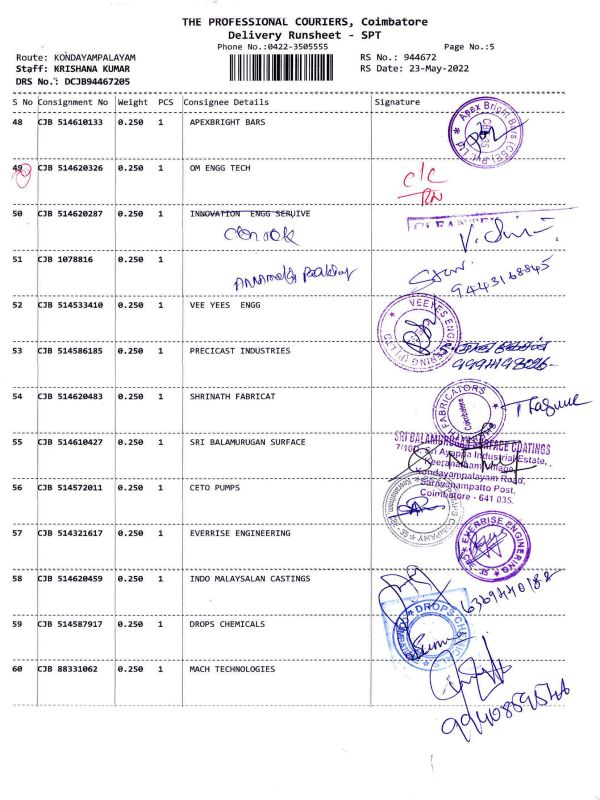 THE PROFESSIONAL COURIERS, Coimbatore
Delivery Runsheet - SPT
Phone No.:0422-3505555 Page No.:5
Route: KONDAYAMPALAYAM RS No.: 944672
Staff: KRISHANA KUMAR RS Date: 23-May-2022
DRS No.: DCJB94467205
S No Consignment No Weight PCS Consignee Details Signature
48 CJB 514610133 0.250 1 APEXBRIGHT BARS
Apex Bright Bars (CBE) Pvt Ltd
49 CJB 514620326 0.250 1 OM ENGG TECH
C/C
50 CJB 514620287 0.250 1 INNOVATION ENGG SERUIVE
51 CJB 1078816 0.250 1
9443168845
52 CJB 514533410 0.250 1 VEE YEES ENGG
VEEYES ENGINEERING (P) LTD
53 CJB 514586185 0.250 1 PRECICAST INDUSTRIES
54 CJB 514620483 0.250 1 SHRINATH FABRICAT
FABRICATORS
Coimbatore
55 CJB 514610427 0.250 1 SRI BALAMURUGAN SURFACE
SRI BALAMURUGAN SURFACE COATINGS
7/10D, Sri Ayyappa Industrial Estate,
Keeranatham Village,
Kondayampalayam Road,
Saravanampatto Post,
Coimbatore - 641 035.
56 CJB 514572011 0.250 1 CETO PUMPS
57 CJB 514321617 0.250 1 EVERRISE ENGINEERING
EVERRISE ENGINEERING
58 CJB 514620459 0.250 1 INDO MALAYSALAN CASTINGS
6369440188
59 CJB 514587917 0.250 1 DROPS CHEMICALS
DROPS CHEMICALS
60 CJB 88331062 0.250 1 MACH TECHNOLOGIES